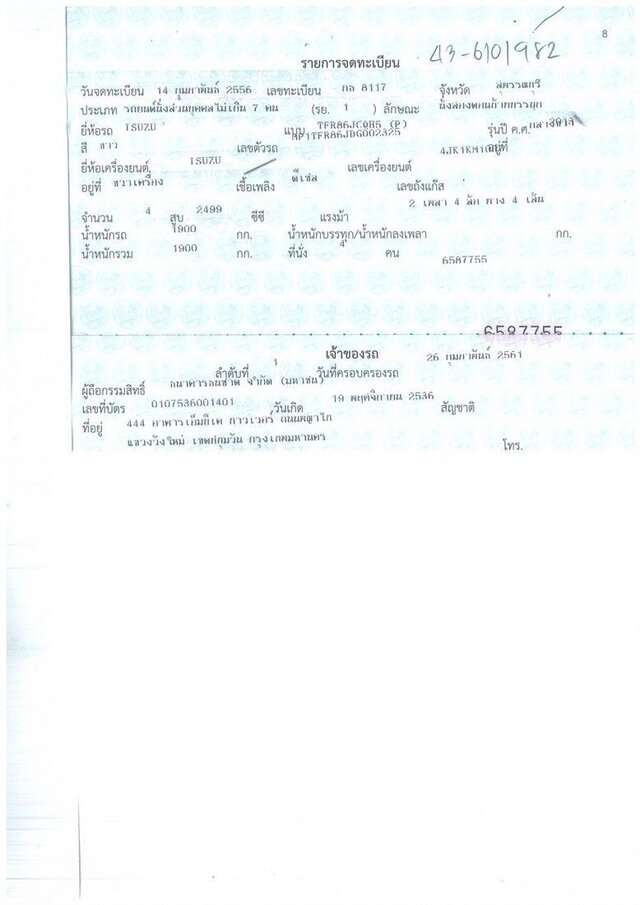 8
43-610/982
รายการจดทะเบียน
วันจดทะเบียน 14 กุมภาพันธ์ 2556 เลขทะเบียน กล 8117 จังหวัด สุพรรณบุรี
ประเภท รถยนต์นั่งส่วนบุคคลไม่เกิน 7 คน (รย. 1 ) ลักษณะ
ยี่ห้อรถ ISUZU แบบ TFR86JCQH5 (P) รุ่นปี ค.ศ.
สี ขาว เลขตัวรถ MP1TFR86JDG002325 อยู่ที่
ยี่ห้อเครื่องยนต์ ISUZU เลขเครื่องยนต์
อยู่ที่ ขวาเครื่อง เชื้อเพลิง ดีเซล เลขถังแก๊ส
จำนวน 4 สูบ 2499 ซีซี แรงม้า 2 เพลา 4 ล้อ ยาง 4 เส้น
น้ำหนักรถ 1900 กก. น้ำหนักบรรทุก/น้ำหนักลงเพลา กก.
น้ำหนักรวม 1900 กก. ที่นั่ง 4 คน
6587755
6587755
เจ้าของรถ
ลำดับที่ 1 วันที่ครอบครองรถ 26 กุมภาพันธ์ 2561
ผู้ถือกรรมสิทธิ์ ธนาคารธนชาต จำกัด (มหาชน)
เลขที่บัตร 0107536001401 วันเกิด 19 พฤศจิกายน 2536 สัญชาติ
ที่อยู่ 444 อาคารเอ็มบีเค ทาวเวอร์ ถนนพญาไท
แขวงวังใหม่ เขตปทุมวัน กรุงเทพมหานคร โทร.